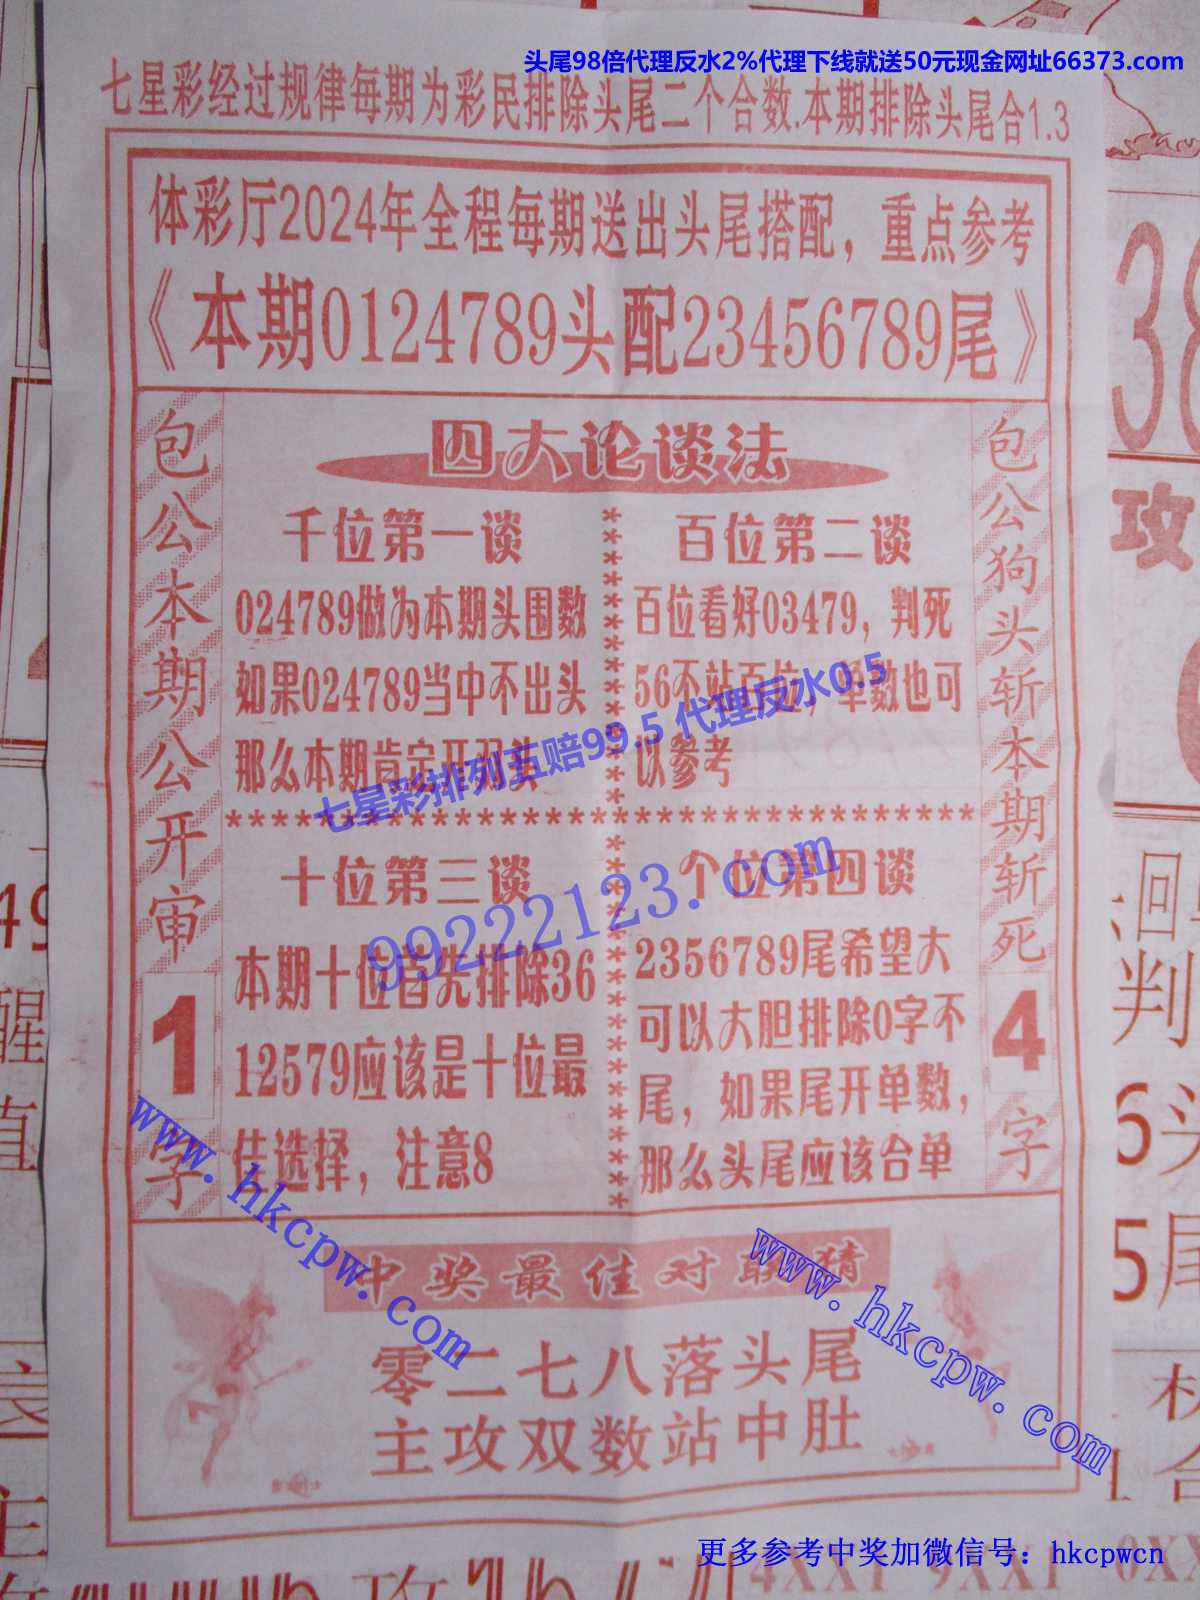 头尾98倍代理反水2%代理下线就送50元现金网址66373.com
七星彩经过规律每期为彩民排除头尾二个合数.本期排除头尾合1.3
体彩厅2024年全程每期送出头尾搭配，重点参考
《本期0124789头配23456789尾》
包公本期公开审
1
字
四大论谈法
千位第一谈
024789做为本期头围数
如果024789当中不出头
那么本期肯定开双头
百位第二谈
百位看好03479，判死
56不站百位，单数也可
以参考
七星彩排列五赔99.5 代理反水0.5
************************************
十位第三谈
本期十位首先排除36
12579应该是十位最
佳选择，注意8
个位第四谈
2356789尾希望大
可以大胆排除0字不
尾，如果尾开单数，
那么头尾应该合单
99222123.com
包公狗头斩本期斩死
4
字
www.hkcpw.com
www.hkcpw.com
中奖最佳对联猜
零二七八落头尾
主攻双数站中肚
38
攻
判
6头
5尾
49
醒
值
4XX1 9XX1 0XX
更多参考中奖加微信号：hkcpwcn